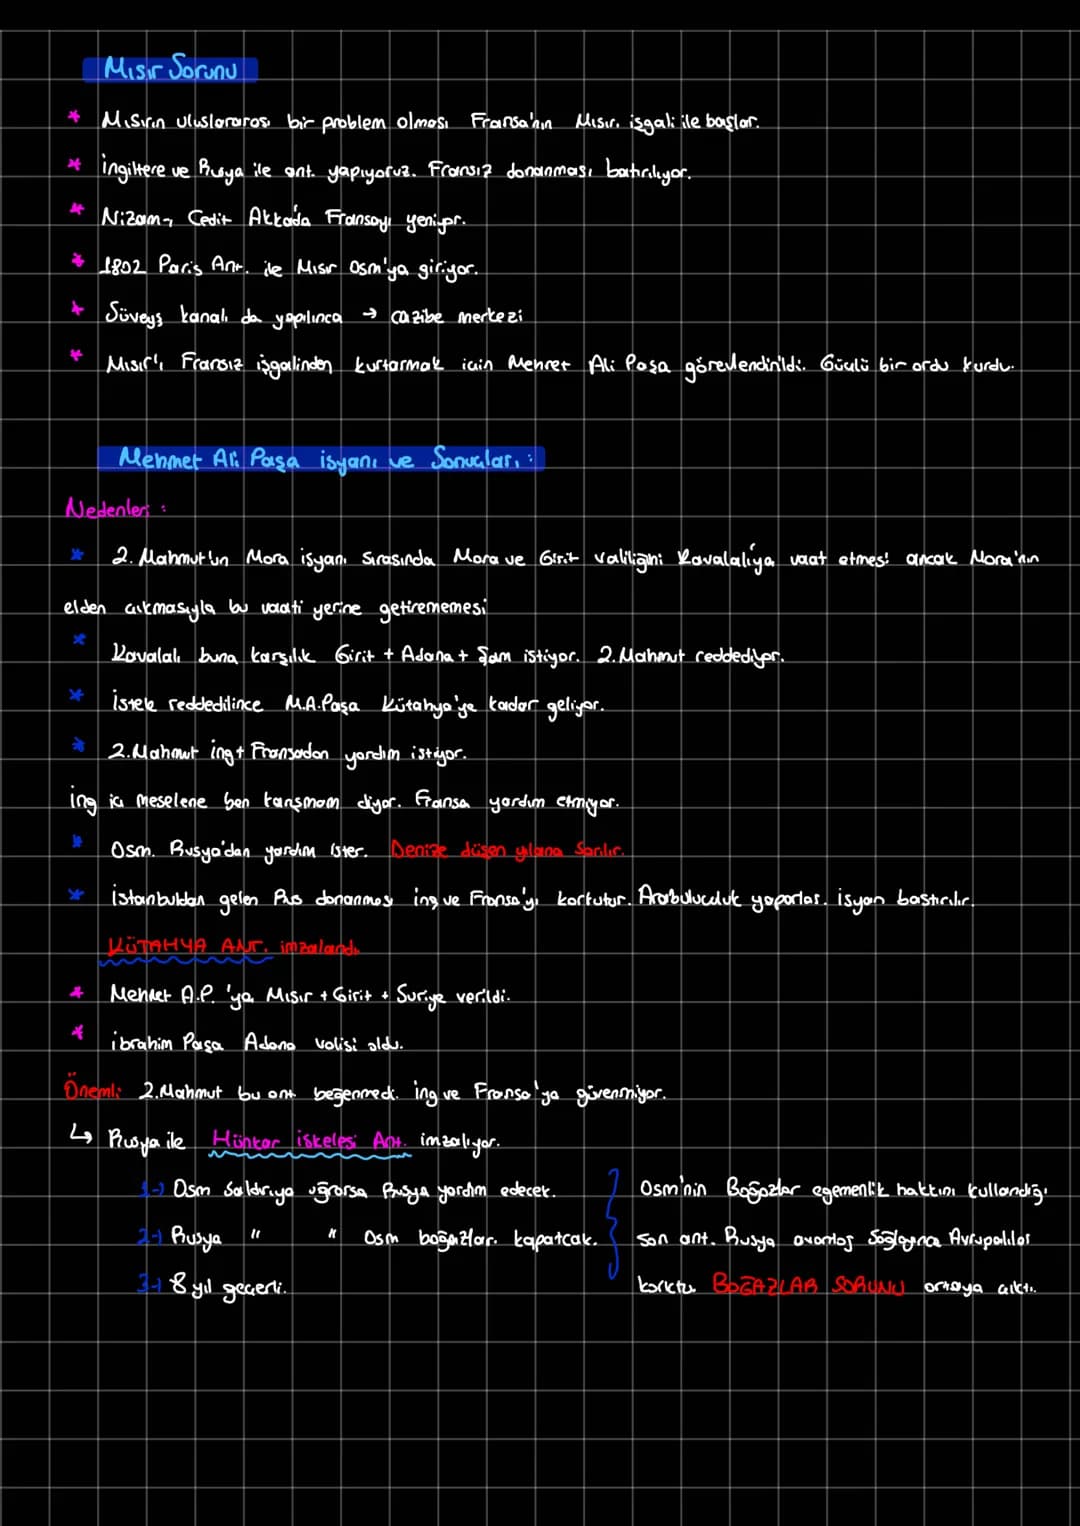 Mısır Sorunu
* Mısırın uluslararası bir problem olması Fransa'nın Mısırı işgali ile başlar.
* İngiltere ve Rusya ile ant. yapıyoruz. Fransız donanması batırılıyor.
* Nizam-ı Cedit Akka'da Fransayı yeniyor.
* 1802 Paris Ant. ile Mısır Osm'ya giriyor.
* Süveyş kanalı da yapılınca → cazibe merkezi
* Mısır'ı Fransız işgalinden kurtarmak için Mehmet Ali Paşa görevlendirildi. Güçlü bir ordu kurdu.
Mehmet Ali Paşa isyanı ve Sonuçları :
Nedenleri :
* 2. Mahmut'un Mora isyanı sırasında Mora ve Girit valiliğini Kavalalı'ya vaat etmesi ancak Mora'nın
elden çıkmasıyla bu vaati yerine getirememesi
* Kavalalı buna karşılık Girit + Adana + Şam istiyor. 2. Mahmut reddediyor.
* İstek reddedilince M.A.Paşa Kütahya'ya kadar geliyor.
* 2.Mahmut ing + Fransadan yardım istiyor.
ing iç meselene ben karışmam diyor. Fransa yardım etmiyor.
* Osm. Rusya'dan yardım ister. Denize düşen yılana sarılır.
* İstanbuldan gelen Rus donanması ing ve Fransa'yı korkutur. Arabuluculuk yaparlar. isyan bastırılır.
KÜTAHYA ANT. imzalandı.
* Mehmet A.P. 'ya Mısır + Girit + Suriye verildi.
* ibrahim Paşa Adana valisi oldu.
Önemli: 2.Mahmut bu ant. beğenmedi. ing ve Fransa'ya güvenmiyor.
↳ Rusya ile Hünkar iskelesi Ant. imzalıyor.
1-) Osm saldırıya uğrarsa Rusya yardım edecek.
2-) Rusya " " Osm boğazları kapatcak.
3-) 8 yıl geçerli.
Osm'nin Boğazlar egemenlik hakkını kullandığı
son ant. Rusya avantaj sağlayınca Avrupalılar
korktu BOĞAZLAR SORUNU ortaya çıktı.